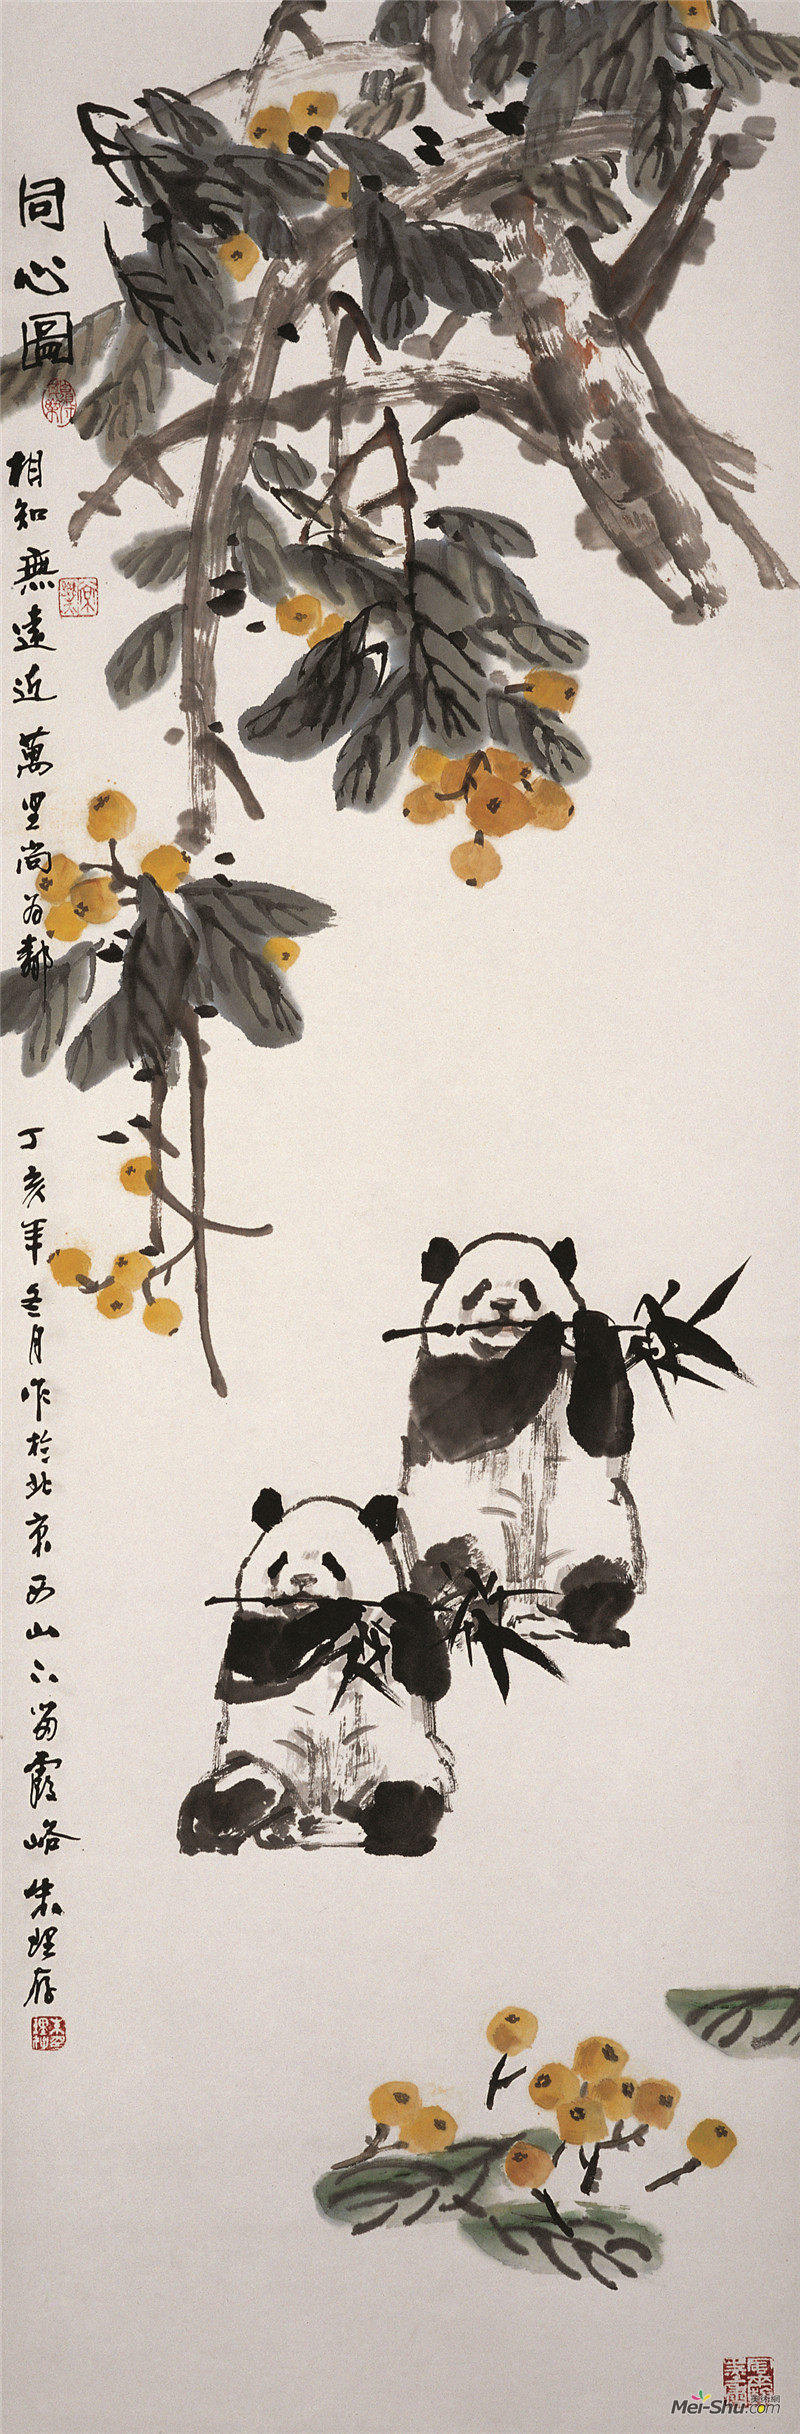 同心圖
相知無遠近 萬里尚為鄰
丁亥年冬月作於北京西山下留霞峪 朱理存
美术網
Mei-Shu.com